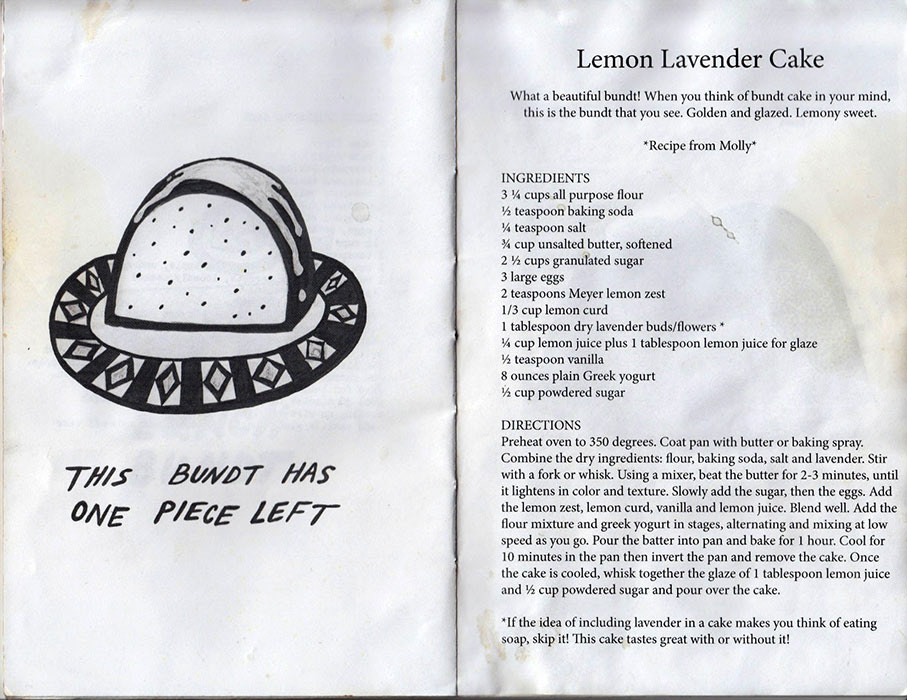 THIS BUNDT HAS
ONE PIECE LEFT
Lemon Lavender Cake
What a beautiful bundt! When you think of bundt cake in your mind,
this is the bundt that you see. Golden and glazed. Lemony sweet.
*Recipe from Molly*
INGREDIENTS
3 ¼ cups all purpose flour
½ teaspoon baking soda
¼ teaspoon salt
¾ cup unsalted butter, softened
2 ½ cups granulated sugar
3 large eggs
2 teaspoons Meyer lemon zest
1/3 cup lemon curd
1 tablespoon dry lavender buds/flowers *
¼ cup lemon juice plus 1 tablespoon lemon juice for glaze
½ teaspoon vanilla
8 ounces plain Greek yogurt
½ cup powdered sugar
DIRECTIONS
Preheat oven to 350 degrees. Coat pan with butter or baking spray.
Combine the dry ingredients: flour, baking soda, salt and lavender. Stir
with a fork or whisk. Using a mixer, beat the butter for 2-3 minutes, until
it lightens in color and texture. Slowly add the sugar, then the eggs. Add
the lemon zest, lemon curd, vanilla and lemon juice. Blend well. Add the
flour mixture and greek yogurt in stages, alternating and mixing at low
speed as you go. Pour the batter into pan and bake for 1 hour. Cool for
10 minutes in the pan then invert the pan and remove the cake. Once
the cake is cooled, whisk together the glaze of 1 tablespoon lemon juice
and ½ cup powdered sugar and pour over the cake.
*If the idea of including lavender in a cake makes you think of eating
soap, skip it! This cake tastes great with or without it!